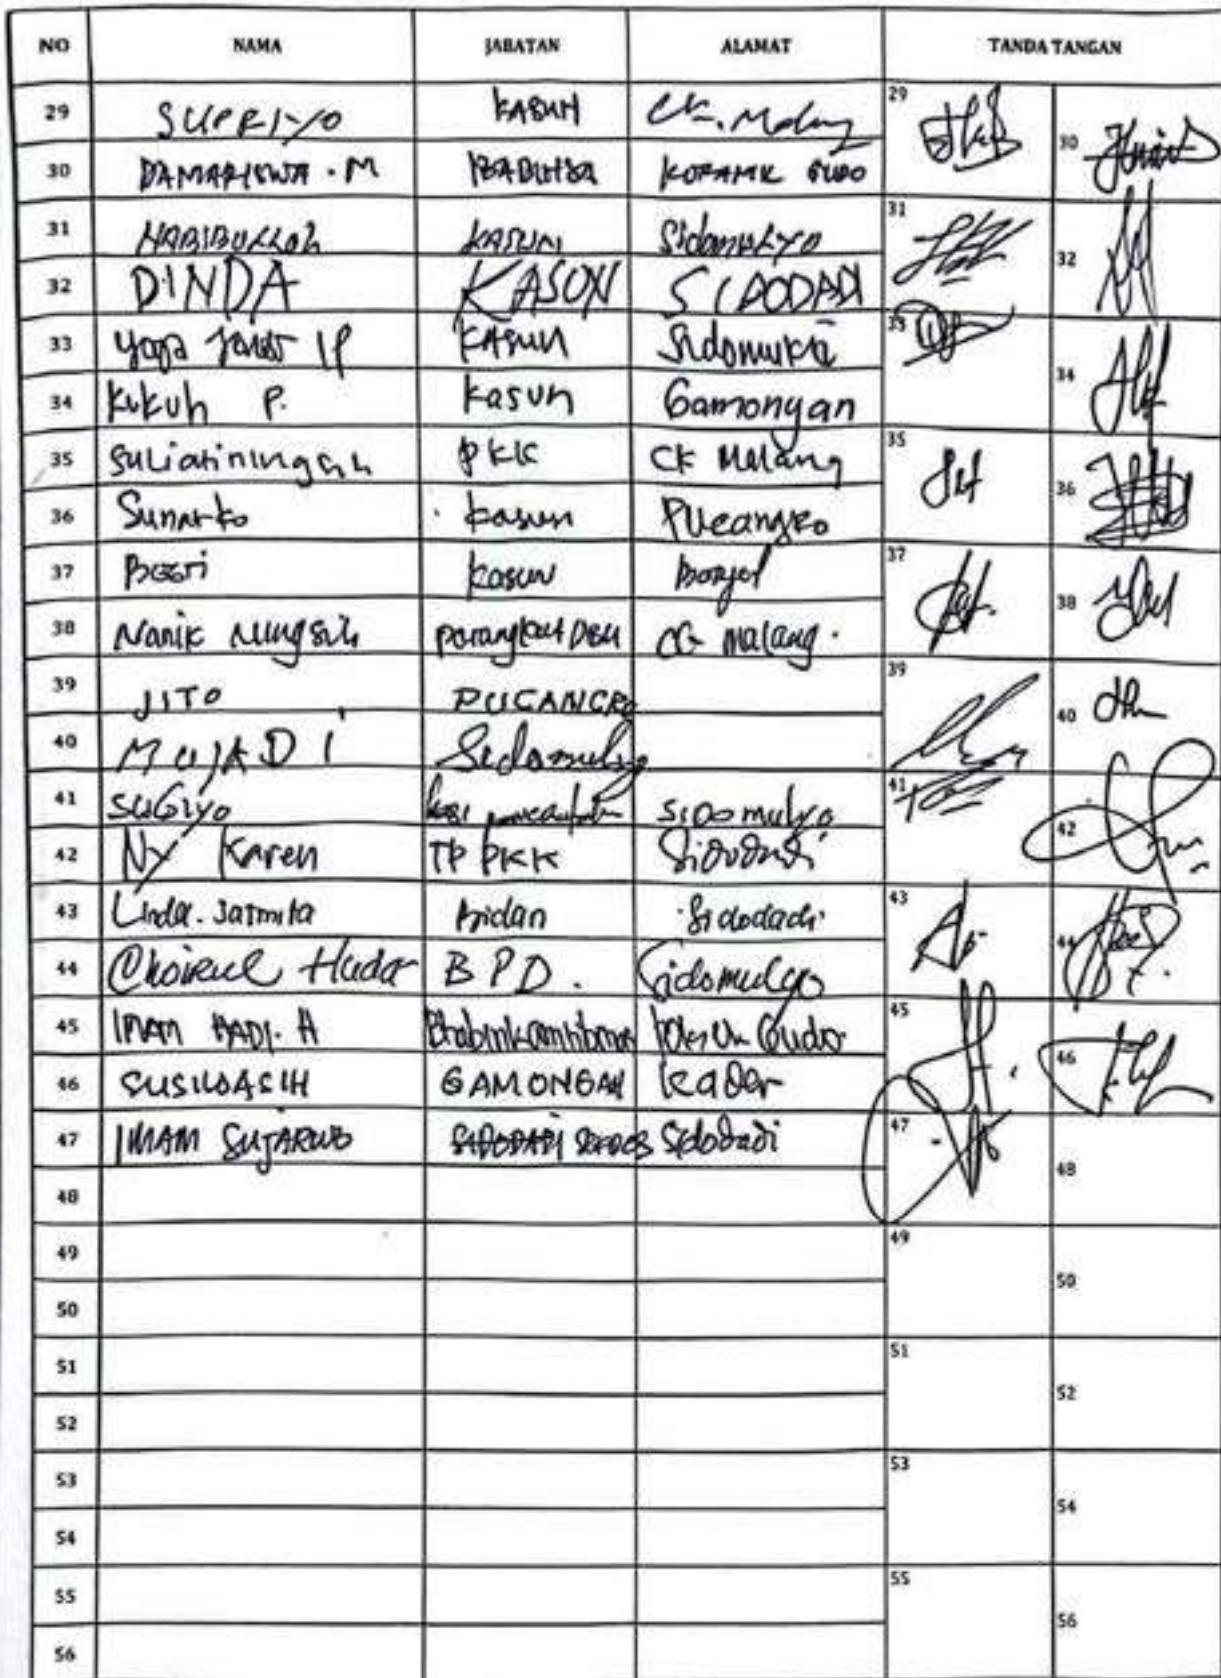 NO NAMA JABATAN ALAMAT TANDA TANGAN
29 SUPRIYO KASUN CK. Malang 29
30 DAMARISWA . M BABINSA KORAMIL GUDO 30
31 HABIBULLOH KASUN Sidomulyo 31
32 DINDA KASUN SIDODADI 32
33 Yoga KASUN Sidomukti 33
34 Kukuh P. Kasun Gamongan 34
35 Suliatiningsih PKK CK Malang 35
36 Sunarko Kasun Pucangro 36
37 Kasun 37
38 Nanik Nungsih CG Malang. 38
39 JITO PUCANGRO 39
40 MUJADI Sidomulyo 40
41 SUGIYO Kasi SIDOmulyo 41
42 Ny Karen TP PKK Sidodadi 42
43 Linda. Jatmita Bidan Sidodadi 43
44 Choirul Huda B P D . Sidomulyo 44
45 IMAM HADI. H Bhabinkamtibmas Polsek Gudo 45
46 SUSILOASIH GAMONGAN Kader 46
47 IMAM SUJARWO SIDODADI Sidodadi 47
48 48
49 49
50 50
51 51
52 52
53 53
54 54
55 55
56 56